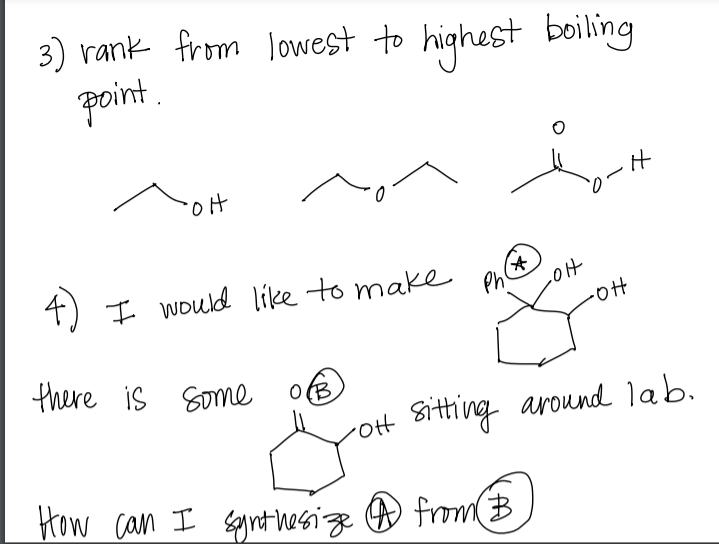 3) rank from lowest to highest boiling
point.
O
OH O O-H
4) I would like to make Ph A OH OH
there is some O B OH sitting around lab.
How can I synthesize A from B